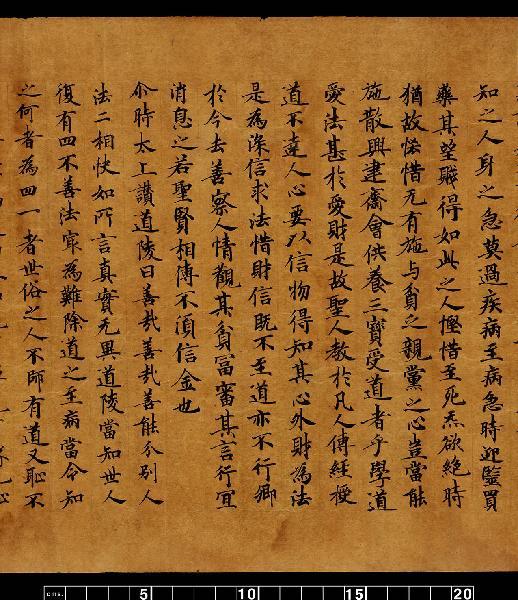 知之人身之急莫過疾病至病急時迎毉買
藥其望賤得如此之人慳惜至死炁欲絕時
猶故恡惜无有施与貧乏親黨之心豈當能
施散興建齋會供養三寶受道者乎學道
愛法甚於愛財是故聖人教於凡人傳經授
道不達人心要以信物得知其心外財為法
是為深信求法惜財信既不至道亦不行卿
於今去善察人情觀其貧富審其言行宜
消息之若聖賢相傳不須信金也
尒時太上讚道陵曰善哉善哉善能分別人
法二相快如所言真實无異道陵當知世人
復有四不善法寂為難除道之王病當令知
之何者為四一者世俗之人不師有道又恥不